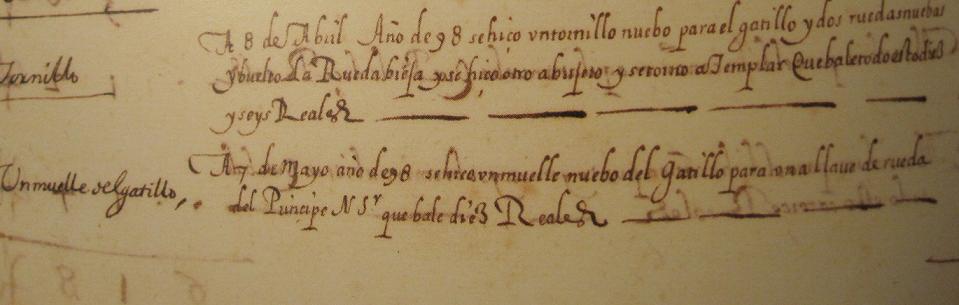 A 8 de Abril Año de 98 se hiço vn tornillo nuebo para el gatillo y dos ruedas nuebas
Tornillo
y buelto la Rueda bieja y se hiço otro abujero y se torno a Templar Que bale todo esto dies
y seys Reales
A 7 de Mayo año de 98 se hiço vn muelle nuebo del Gatillo para vna llaue de rueda
Vn muelle del gatillo,
del Principe N Sr que bale diez Reales